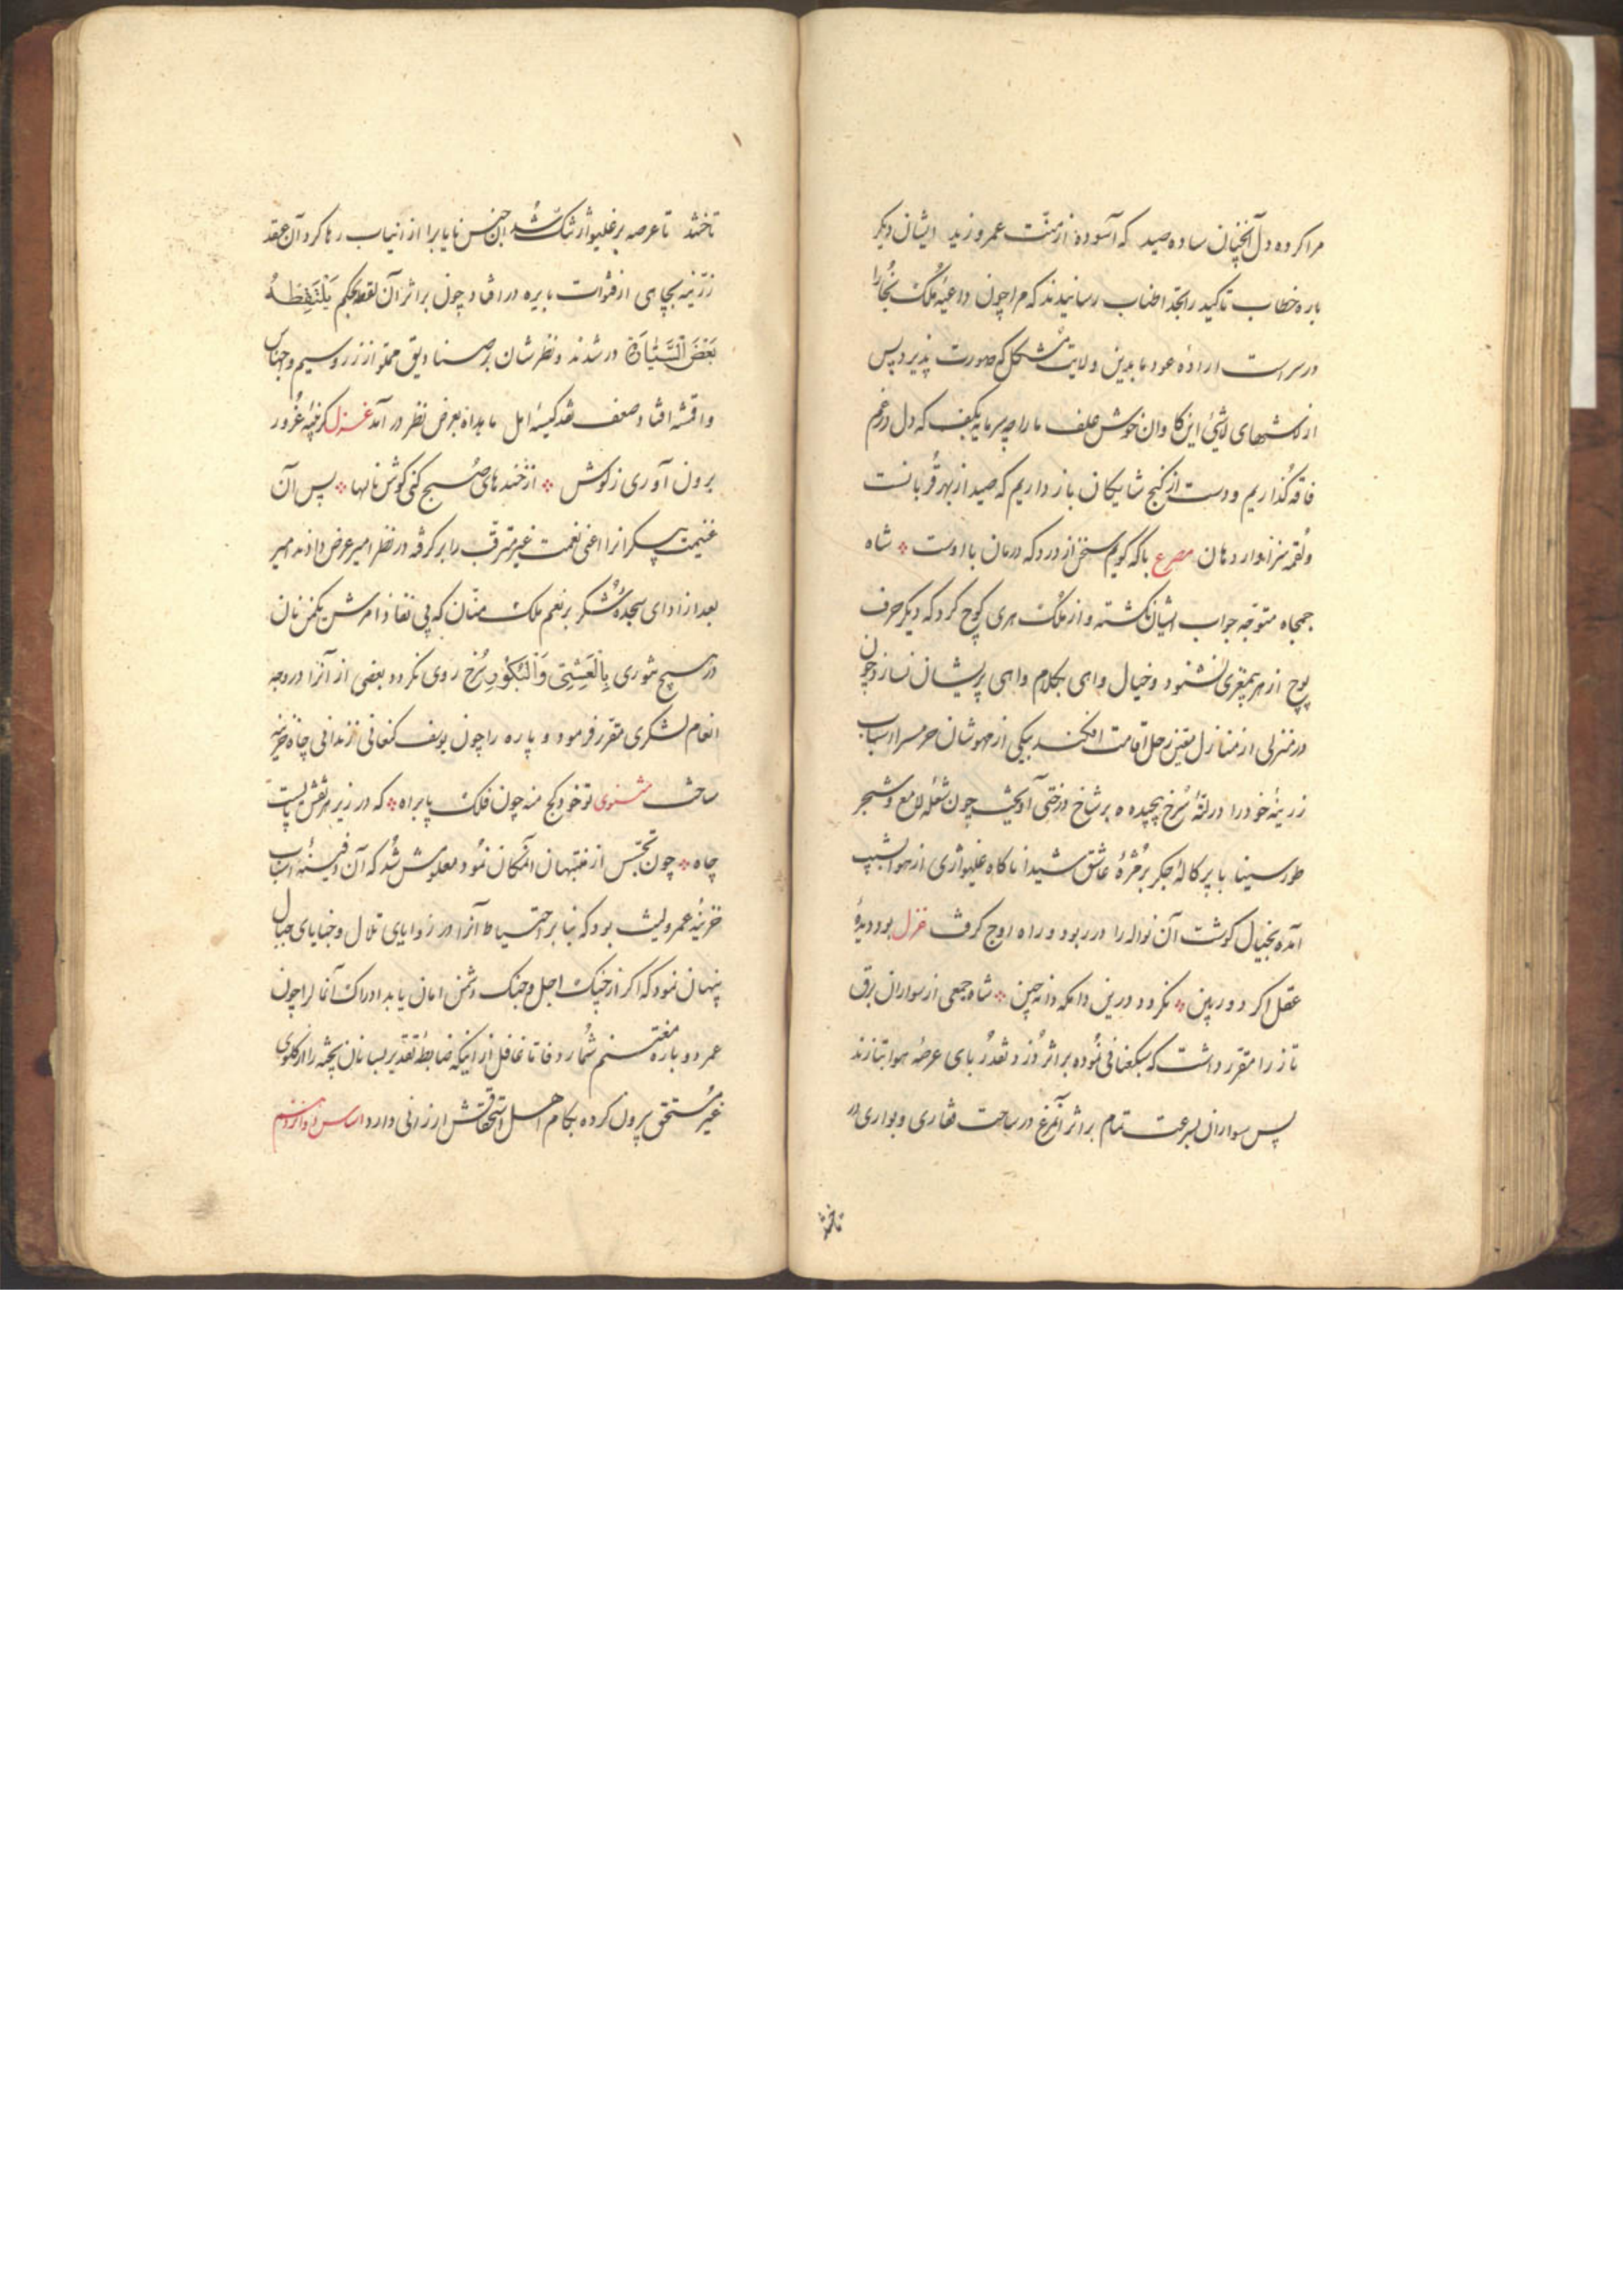 مرا کرده دل آنچنان ساده صید که آسوده از منّت عمرو زید ایشان دیگر
باره خطاب تاکید را بحدّ اطناب رسانیدند که مرا چون داعیهٔ ملک بخارا
در سر است اراده عود ما بدین ولایت مشکل که صورت پذیرد پس
از لاشهای لاشیٔ این کاوان خوش علف ما را چه سرمایه بکف که دل در غم
فاقه گذاریم و دست از گنج شایکان باز داریم که صید از بهر قربانست
و لقمه سزاوار دهان مصرع با که گویم سخن از درد که درمان با اوست شاه
جمجاه متوجّه جواب ایشان نکشته و از ملک هری کوچ کرد که دیگر حرف
پوچ از هر بیمغزی نشنود و خیال واهی بکلام واهی پریشان نسازد چون
در منزلی از منازل معیّن رحل اقامت افکند یکی از مهوشان حرمسرا اسباب
زرینهٔ خود را در لتهٔ سرخ پیچیده بر شاخ درختی آویخت چون شعلهٔ لامع و شجر
طور سینا یا پرکالهٔ جگر بر مژهٔ عاشق شیدا ناکاه غلیواژی از هوا بشیب
آمده بخیال کوشت آن نواله را در ربود و راه اوج کرفت غزل بود دیدهٔ
عقل اکر دوربین نکردد درین دامکه دانه چین شاه جمعی از سواران برق
تاز را مقرر داشت که همعنانی نموده بر اثر دزد نقد ربای عرصهٔ هوا بتازند
پس سواران بسرعت تمام بر اثر آنمرغ در ساحت صحاری و بواری در
تاختند
تاختند تا عرصه بر غلیواژ تنک شد این جنس نایاب را از انیاب رها کرد آن عقد
زرّینه بچاهی از قنوات بایره در افتاد چون بر اثر آن لقطه بحکم یَلْتَقِطْهُ
بَعْضُ السَّیَّارَةِ در شدند و نظرشان بر صنادیق مملوّ از زر و سیم و اجناس
و اقمشه افتاد ضعف نقد کیسهٔ امل مایده بعرض نظر در آمد غزل کر پنبهٔ غرور
برون آوری ز کوش از خندهای صبح کنی کوش نالها پس آن
غنیمت بیکرانرا اعنی نعمت غیر مترقب را بر کرفته در نظر امیر عرض دادند امیر
بعد از ادای سجدهٔ شکر بر نعم ملک منّان که بی نفاذ امرش یکمن نان
در هیچ تنوری بِالْعَشِیِّ وَالْبُکُورِ سرخ روی نکردد بعضی از آنرا در وجه
انعام لشکری مقرّر فرمود و پاره را چون یوسف کنعانی زندانی چاه خزینه
ساخت مثنوی تو خود کج منه چون فلک پا براه که در زیر هر نقش پائیست
چاه چون تجسّس از منتهیان آنمکان نمود معلومش شد که آن دفینهٔ اسباب
خزینهٔ عمرو لیث بود که بنا بر احتیاط آنرا در زوایای تلال و خبایای جبال
پنهان نمود که اکر از چنک اجل و جنک دشمن امان یابد ادراک آنمال را چون
عمر دوباره مغتنم شمارد فاما غافل از اینکه ضابطهٔ تقدیر بسا نان پخته را از کلوی
غیر مستحق برون کرده بکام اهل استحقاقش ارزانی دارد اساس دوازدهم